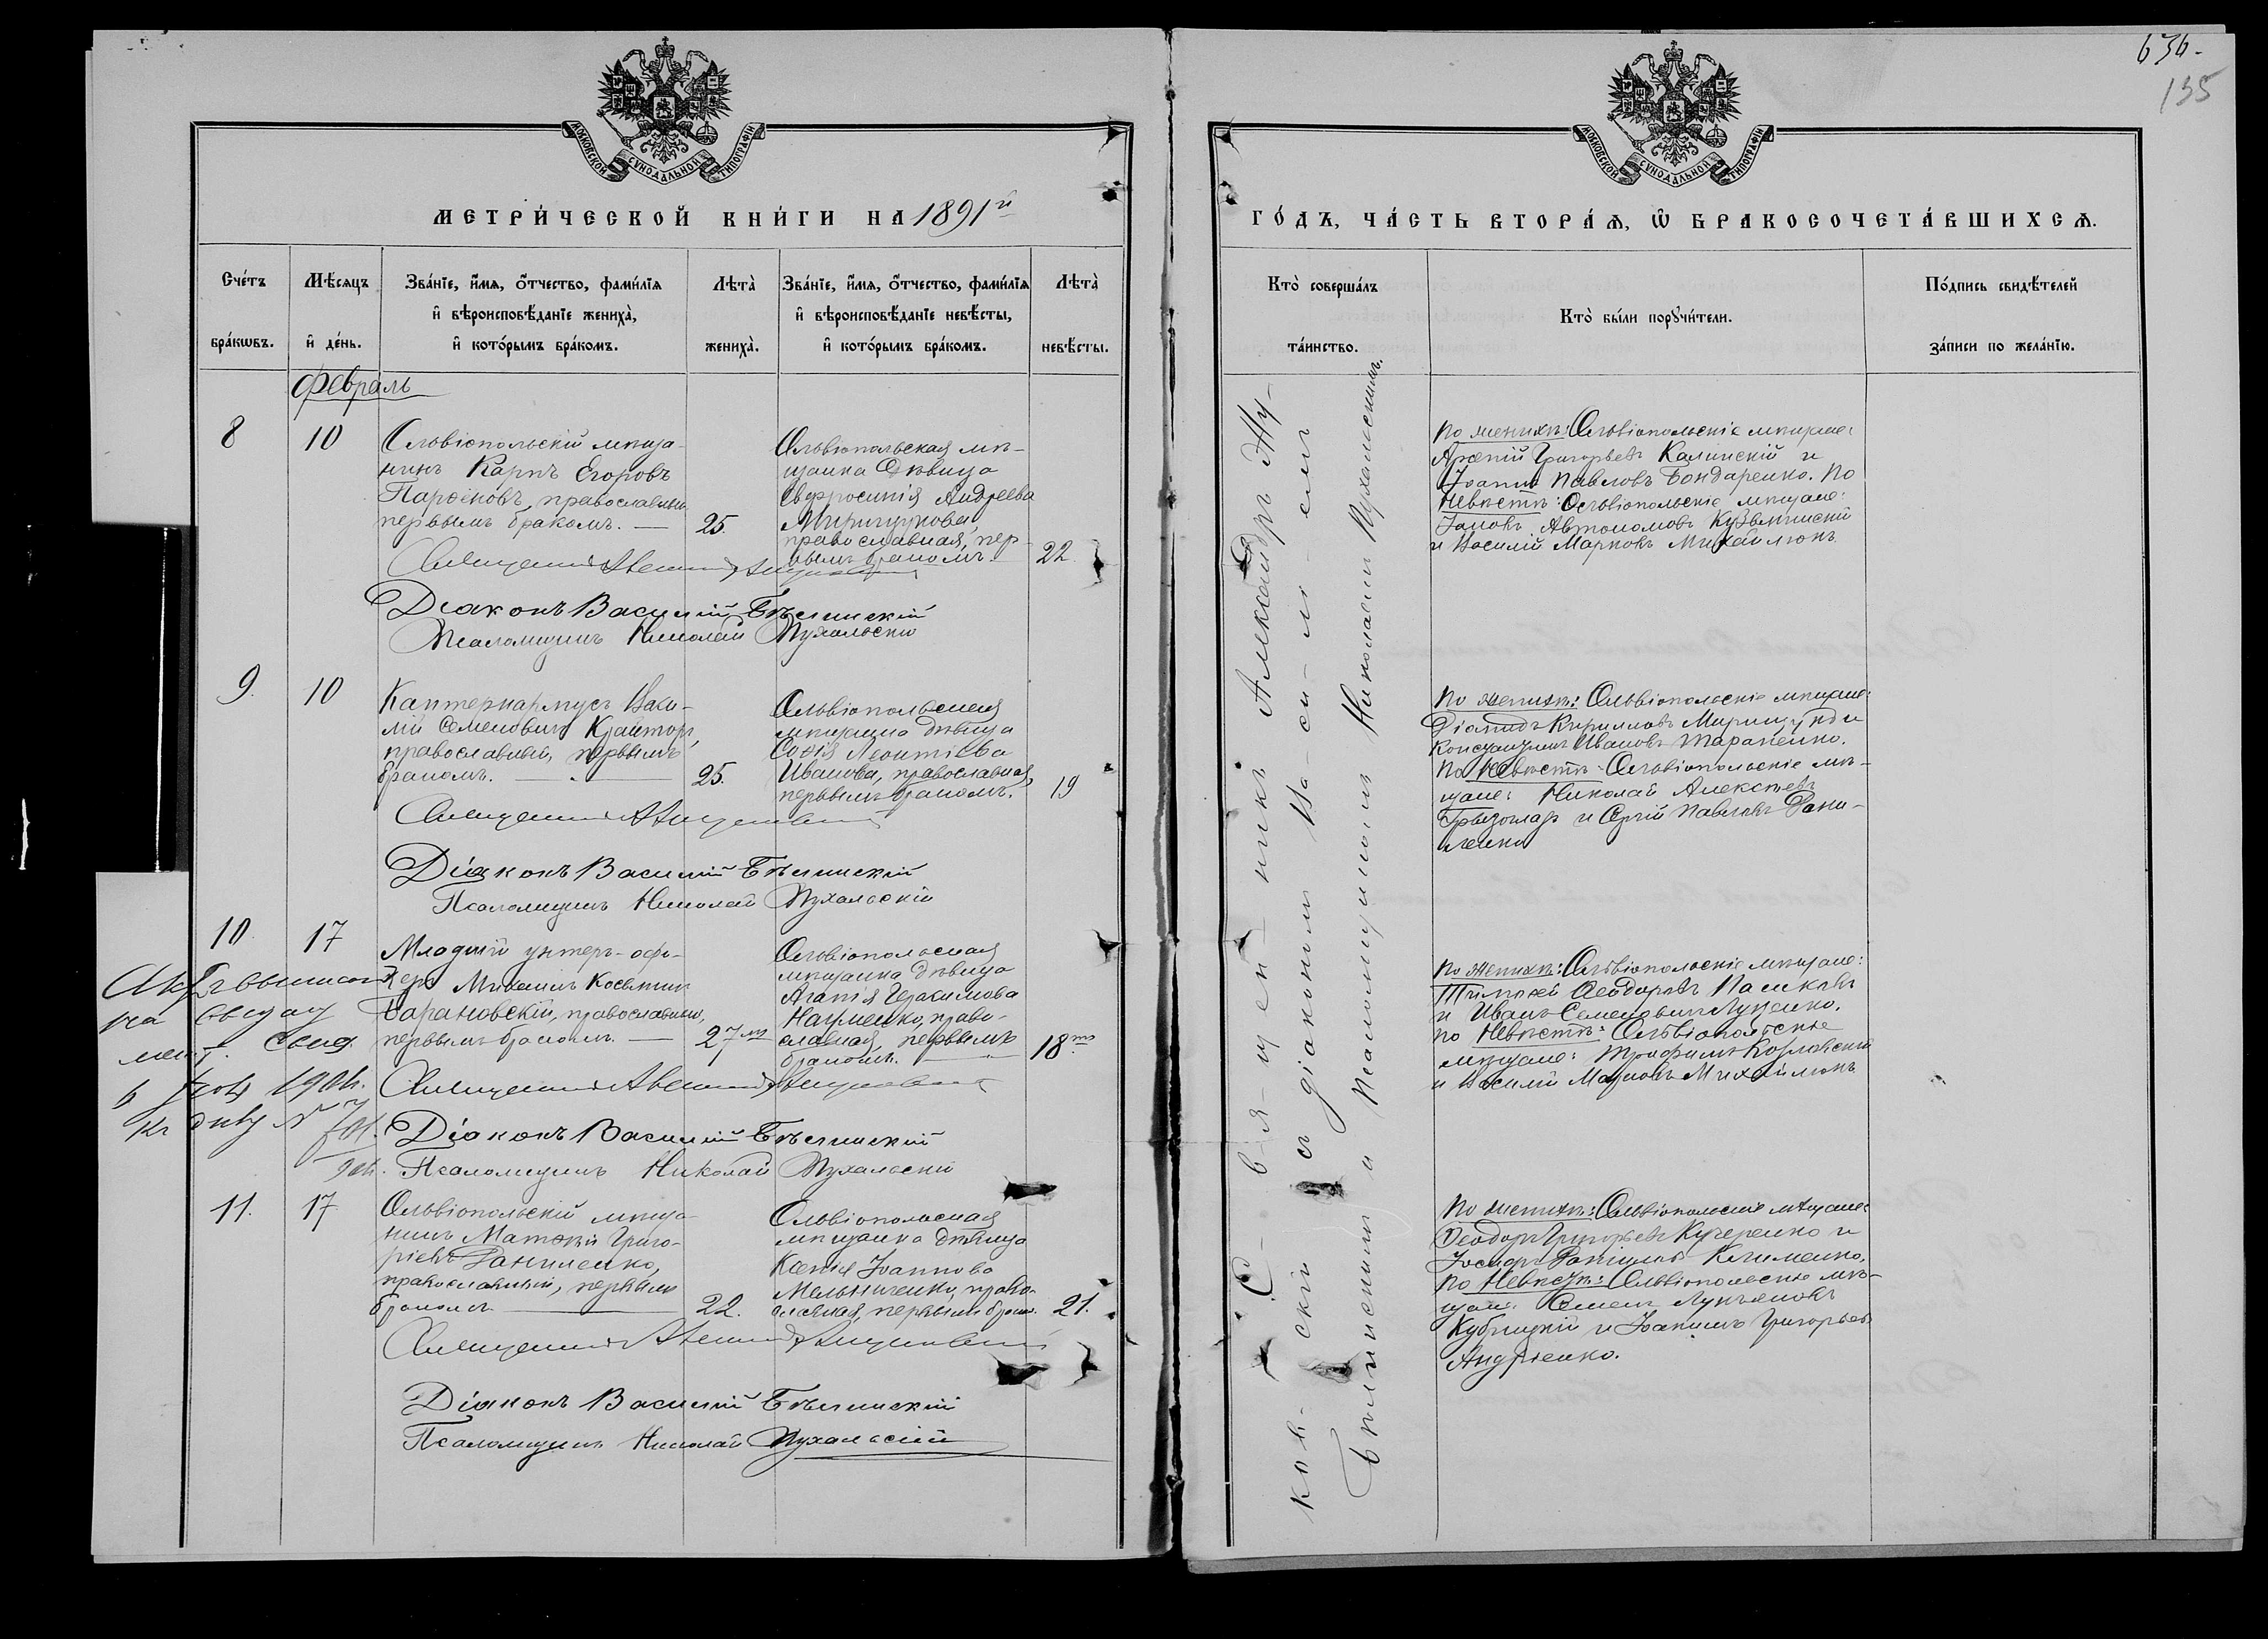 636.
135
МОСКОВСКОЙ СѴНОДАЛЬНОЙ ТИПОГРАФІИ
МЕТРИ́ЧЕСКОЙ КНИ́ГИ НА 1891й
Сче́тъ бра́кѡвъ.
Мѣ́сяцъ и҆ де́нь.
Зва́нїе, и҆́мѧ, ѻ҆́тчество, фами́лїѧ
и҆ вѣроисповѣ́данїе жениха̀,
и҆ кото́рымъ бра́комъ.
Лѣта̀ жениха̀.
Зва́нїе, и҆́мѧ, ѻ҆́тчество, фами́лїѧ
и҆ вѣроисповѣ́данїе невѣ́сты,
и҆ кото́рымъ бра́комъ.
Лѣта̀ невѣ́сты.
Февраль
8
10
Ольвіопольскій мѣща-
нинъ Карпъ Егоровъ
Парѳеновъ, православный
первымъ бракомъ. —
25.
Ольвіопольская мѣ-
щанка дѣвица
Евфросинія Андреева
Мирищукова,
православная, пер-
вымъ бракомъ.
22
Священникъ
Діаконъ Василій Бѣлинскій
Псаломщикъ Николай Пухальскій
9.
10
Каптенармусъ Васи-
лій Семеновичъ
православный, первымъ
бракомъ. —
25.
Ольвіопольская
мѣщанка дѣвица
Софія Леонтіева
Иванова, православная,
первымъ бракомъ.
19
Священникъ
Діаконъ Василій Бѣлинскій
Псаломщикъ Николай Пухальскій
10
17
Младшій унтеръ-офи-
церъ Михаилъ Косьминъ
Барановскій, православный,
первымъ бракомъ. —
27
Ольвіопольская
мѣщанка дѣвица
Агапія Герасимова
Науменко, право-
славная, первымъ
бракомъ. —
18
Священникъ
Діаконъ Василій Бѣлинскій
Псаломщикъ Николай Пухальскій
11.
17
Ольвіопольскій мѣща-
нинъ Матѳей Григо-
ріевъ Даниленко,
православный, первымъ
бракомъ —
22.
Ольвіопольская
мѣщанка дѣвица
Ксенія Іоаннова
Мельниченко, право-
славная, первымъ брак.
21.
Священникъ
Діаконъ Василій Бѣлинскій
Псаломщикъ Николай Пухальскій
МОСКОВСКОЙ СѴНОДАЛЬНОЙ ТИПОГРАФІИ
ГО́ДЪ, ЧА́СТЬ ВТОРА́Ѧ, Ѡ҆ БРАКОСОЧЕТА́ВШИХСѦ.
Кто̀ соверша́лъ та́инство.
Кто̀ бы́ли порꙋчи́тели.
По́дпись свидѣ́телей за́писи по жела́нїю.
С-вя-щен-никъ Александръ Ну-
ков-скій съ діакономъ Ва-си-лі-емъ
Бѣлинскимъ и псаломщикомъ Николаемъ Пухальскимъ.
По женихѣ: Ольвіопольскіе мѣщане:
Арсеній Григорьевъ Калинскій и
Іоаннъ Павловъ Бондаренко. По
невѣстѣ: Ольвіопольскіе мѣщане:
Іаковъ Автономовъ Кузьминскій
и Василій Марковъ Михайлюкъ.
По женихѣ: Ольвіопольскіе мѣщане:
Діомидъ Кирилловъ Мирищукъ и
Константинъ Ивановъ Тараненко.
По невѣстѣ: Ольвіопольскіе мѣ-
щане: Николай Алексѣевъ
и Сергій Павловъ Дани-
ленко
По женихѣ: Ольвіопольскіе мѣщане:
Тимоѳей Ѳеодоровъ
и Иванъ Семеновичъ Луценко.
по невѣстѣ: Ольвіопольскіе
мѣщане: Трофимъ Козловскій
и Василій Марковъ Михайлюкъ
По женихѣ: Ольвіопольскіе мѣщане:
Ѳеодоръ Григорьевъ Кучеренко и
Іосифъ Даніиловъ Клименко.
По невѣстѣ: Ольвіопольскіе мѣ-
щане: Семенъ Лукьяновъ
Кубрицкій и Іоакимъ Григорьевъ
Андріенко.